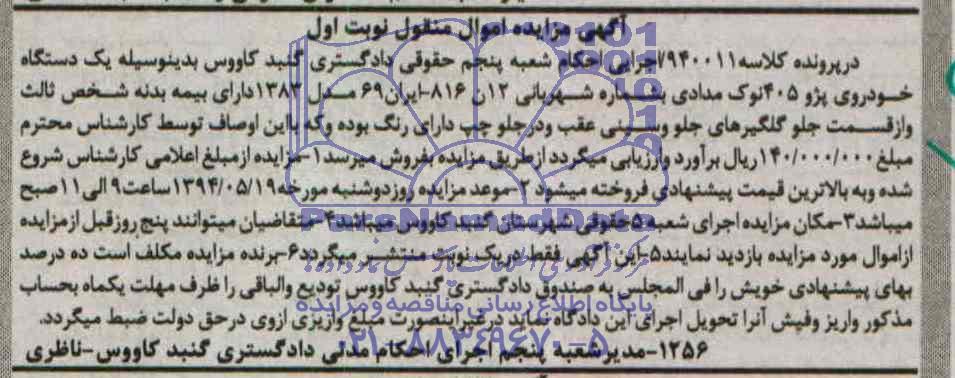 آگهی مزایده اموال منقول نوبت اول
درپرونده کلاسه۹۴۰۰۱۱/اجرایی احکام شعبه پنجم حقوقی دادگستری گنبد کاووس بدینوسیله یک دستگاه
خودروی پژو ۴۰۵نوک مدادی بشماره شهربانی ۱۲ن ۸۱۶-ایران۶۹ مدل ۱۳۸۳دارای بیمه بدنه شخص ثالث
وازقسمت جلو گلگیرهای جلو وستونی عقب ودرجلو چپ دارای رنگ بوده وکه بااین اوصاف توسط کارشناس محترم
مبلغ ۱۴۰/۰۰۰/۰۰۰ریال برآورد وارزیابی میگردد ازطریق مزایده بفروش میرسد۱-مزایده ازمبلغ اعلامی کارشناس شروع
شده وبه بالاترین قیمت پیشنهادی فروخته میشود ۲-موعد مزایده روزدوشنبه مورخه۱۳۹۴/۰۵/۱۹ساعت۹ الی۱۱صبح
میباشد۳-مکان مزایده اجرای شعبه۵حقوقی شهرستان گنبد کاووس میباشد۴-متقاضیان میتوانند پنج روزقبل ازمزایده
ازاموال مورد مزایده بازدید نمایند۵-این آگهی فقط دریک نوبت منتشر میگردد۶-برنده مزایده مکلف است ده درصد
بهای پیشنهادی خویش را فی المجلس به صندوق دادگستری گنبد کاووس تودیع والباقی را ظرف مهلت یکماه بحساب
مذکور واریز وفیش آنرا تحویل اجرای این دادگاه نماید درغیراینصورت مبلغ واریزی ازوی درحق دولت ضبط میگردد.
۱۲۵۶-مدیرشعبه پنجم اجرای احکام مدنی دادگستری گنبد کاووس-ناظری
ParsNamadData
پایگاه اطلاع رسانی مناقصه و مزایده
۰۲۱-۸۸۳۴۹۶۷۰-۵